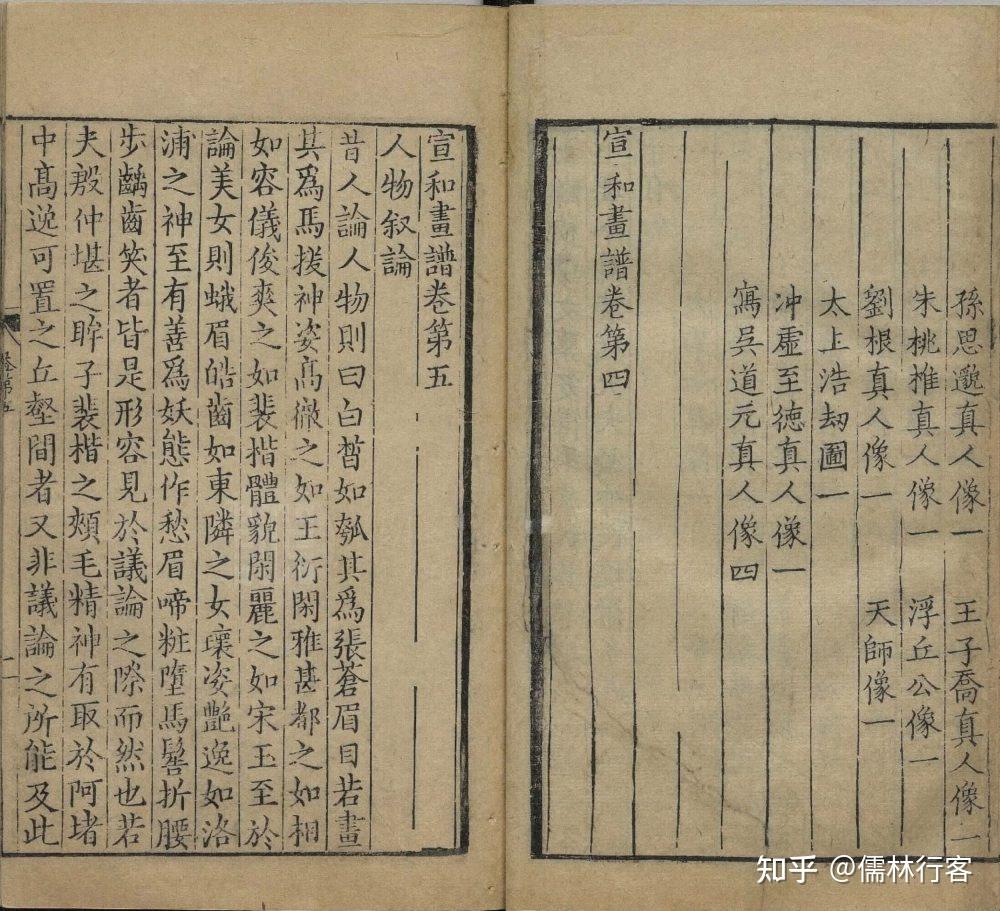 孫思邈真人像一　王子喬真人像一
朱桃椎真人像一　浮丘公像一
劉根真人像一　天師像一
太上浩劫圖一
冲虛至徳真人像一
寫吳道元真人像四
宣和畫譜卷第四
宣和畫譜卷第五
人物叙論
昔人論人物則曰白晳如瓠其爲張蒼眉目若畫
其爲馬援神姿高徹之如王衍閑雅甚都之如相
如容儀俊爽之如裴楷體貌閑麗之如宋玉至於
論美女則蛾眉皓齒如東隣之女瓌姿艶逸如洛
浦之神至有善爲妖態作愁眉啼粧墮馬髻折腰
步齲齒笑者皆是形容見於議論之際而然也若
夫殷仲堪之眸子裴楷之頰毛精神有取於阿堵
中高逸可置之丘壑間者又非議論之所能及此
卷第五
一
知乎 @儒林行客